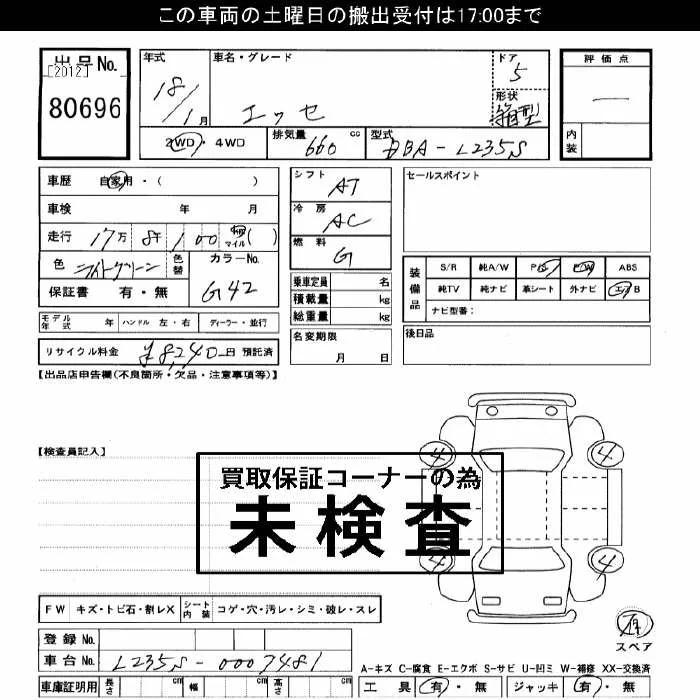 この車両の土曜日の搬出受付は17:00まで
出品No.
[2012]
80696
年式
18/1月
車名・グレード
エッセ
ドア
5
形状
箱型
評価点
一
内装
2WD・4WD
排気量
660cc
型式
DBA-L235S
車歴 自家用・( )
車検 年 月
走行 17万8千100 マイル( )
色 ライトグリーン
色替
カラーNo.
G42
保証書 有・無
シフト
AT
冷房
AC
燃料
G
乗車定員 名
積載量 kg
総重量 kg
名変期限
月 日
セールスポイント
装備品
S/R 純A/W P/S P/W ABS
純TV 純ナビ 革シート 外ナビ エアB
ナビ型番:
後日品
モデル年式 年 ハンドル 左・右 ディーラー・並行
リサイクル料金 ¥8,240円 預託済
【出品店申告欄(不良箇所・欠品・注意事項等)】
【検査員記入】
買取保証コーナーの為
未検査
4 4
4 4
FW キズ・トビ石・割レX シート内装 コゲ・穴・汚レ・シミ・破レ・スレ
有
スペア
登録No.
車台No. L235S-0007481
A-キズ C-腐食 E-エクボ S-サビ U-凹ミ W-補修 XX-交換済
車庫証明用 長さ cm 幅 cm 高さ cm
工具 有・無 ジャッキ 有・無